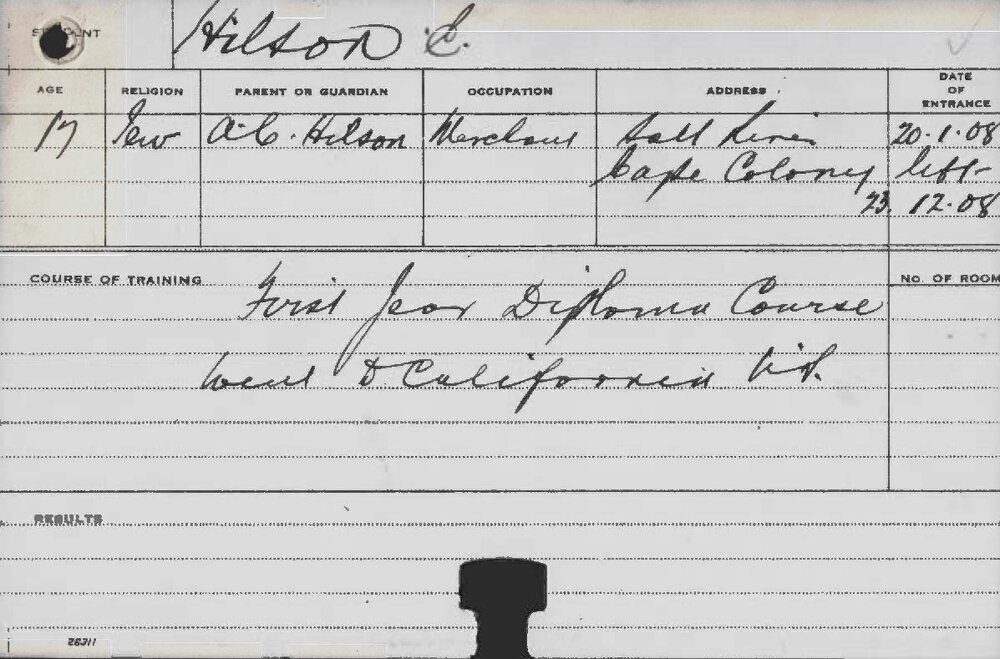 STUDENT Hilson C.
AGE RELIGION PARENT OR GUARDIAN OCCUPATION ADDRESS DATE OF ENTRANCE
17 Jew A.C. Hilson Merchant Salt River 20.1.08
Cape Colony left
23. 12.08
COURSE OF TRAINING No. OF ROOM
First Year Diploma Course
Went to California
RESULTS